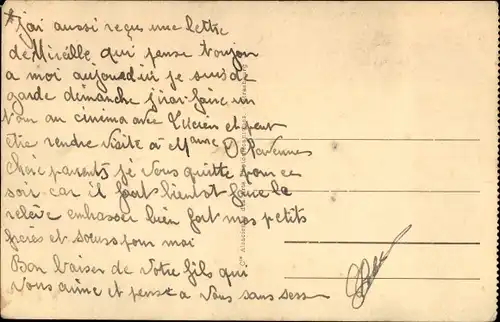 j'ai aussi reçus une lettre
de Mireille qui pense toujou
a moi aujourd'ui je suis de
garde dimanche j'irai faire un
tour au cinema avec Lucien et peut
etre rendre visite à Mame
chère parents je vous quitte pour ce
soir car il faut bientot faire la
relève embrasser bien fort mes petits
frères et sœurs pour moi
Bon baiser de votre fils qui
vous aime et pense a vous sans sess